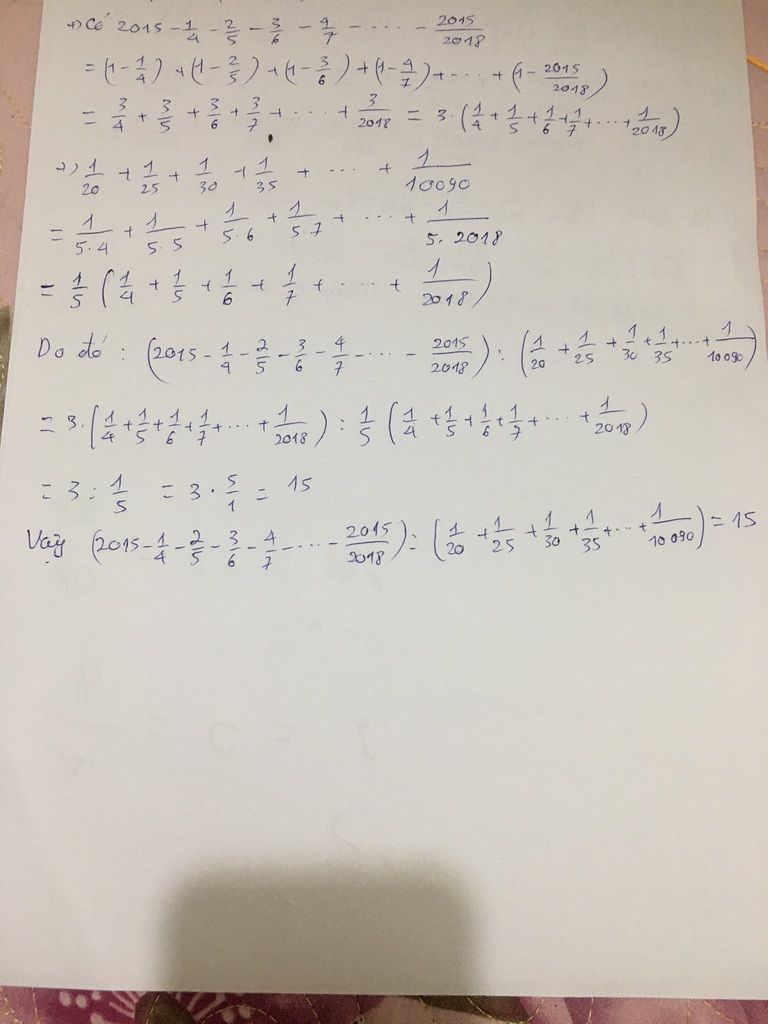 +) Có 2015 - 1/4 - 2/5 - 3/6 - 4/7 - .... - 2015/2018
= (1 - 1/4) + (1 - 2/5) + (1 - 3/6) + (1 - 4/7) + .... + (1 - 2015/2018)
= 3/4 + 3/5 + 3/6 + 3/7 + .... + 3/2018 = 3 . (1/4 + 1/5 + 1/6 + 1/7 + ... + 1/2018)
+) 1/20 + 1/25 + 1/30 + 1/35 + .... + 1/10090
= 1/5.4 + 1/5.5 + 1/5.6 + 1/5.7 + .... + 1/5.2018
= 1/5 (1/4 + 1/5 + 1/6 + 1/7 + .... + 1/2018)
Do đó : (2015 - 1/4 - 2/5 - 3/6 - 4/7 - .... - 2015/2018) : (1/20 + 1/25 + 1/30 + 1/35 + ... + 1/10090)
= 3 . (1/4 + 1/5 + 1/6 + 1/7 + ... + 1/2018) : 1/5 (1/4 + 1/5 + 1/6 + 1/7 + .... + 1/2018)
= 3 : 1/5 = 3 . 5/1 = 15
Vậy (2015 - 1/4 - 2/5 - 3/6 - 4/7 - .... - 2015/2018) : (1/20 + 1/25 + 1/30 + 1/35 + ... + 1/10090) = 15